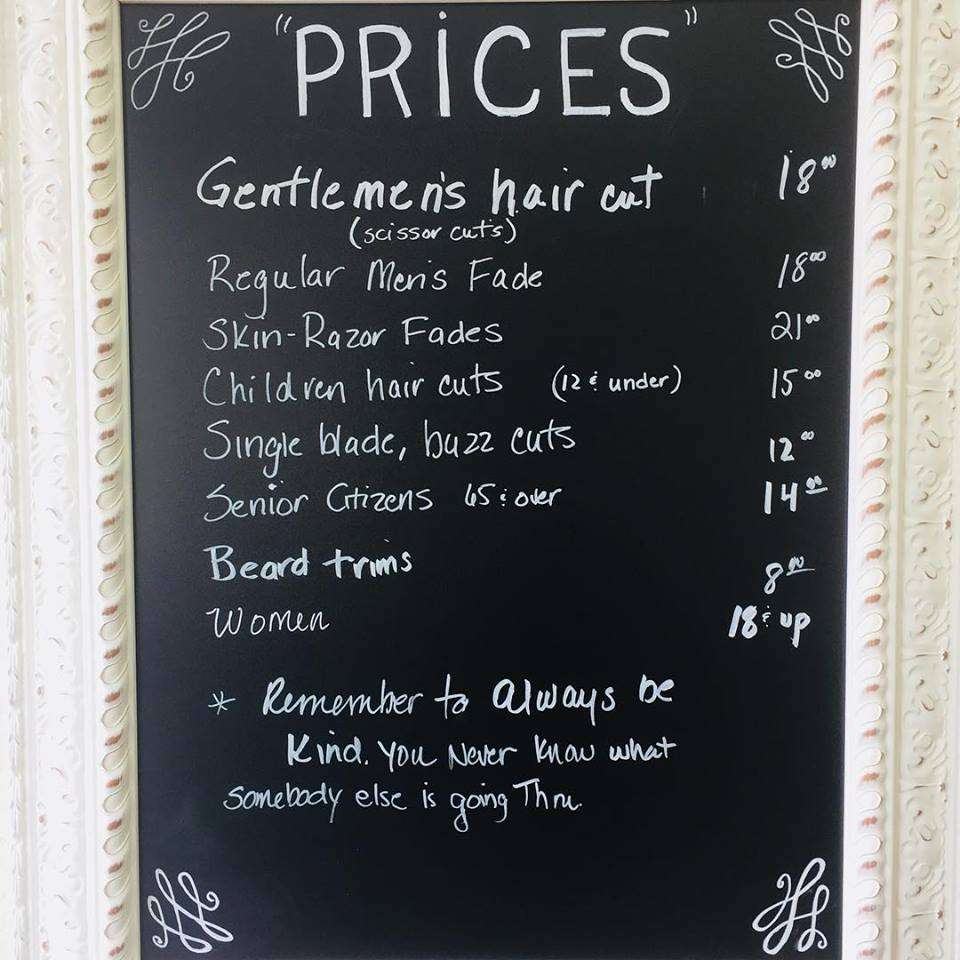 "PRICES"
Gentlemen's hair cut 18.00
(scissor cuts)
Regular Men's Fade 18.00
Skin-Razor Fades 21.00
Children hair cuts (12 & under) 15.00
Single blade, buzz cuts 12.00
Senior Citizens 65 & over 14.00
Beard trims 8.00
Women 18 & up
* Remember to always be
Kind. You Never Know what
somebody else is going Thru.